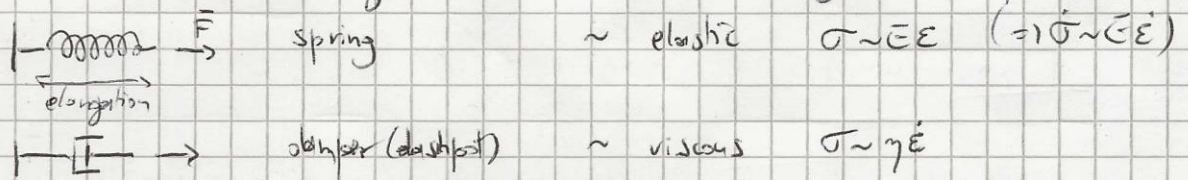 F̄ spring ~ elastic σ ~ Eε (=) σ̇ ~ Eε̇)
elongation
damper (dashpot) ~ viscous σ ~ ηε̇